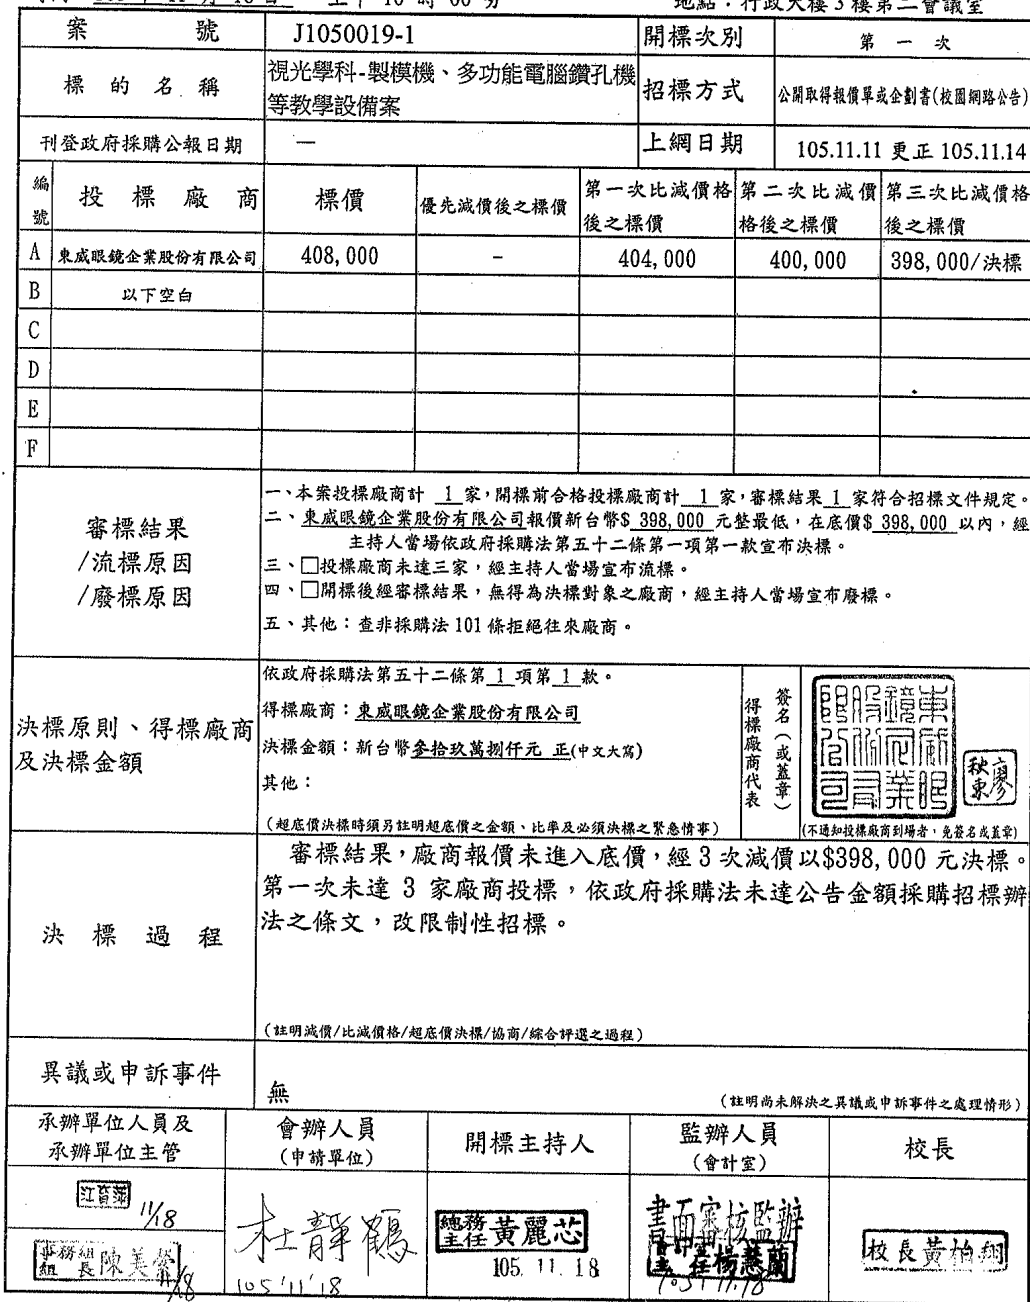 上午 10 時 00 分 地點：行政大樓 3 樓第二會議室
案號 J1050019-1 開標次別 第一次
標的名稱 視光學科-製模機、多功能電腦鑽孔機
等教學設備案
招標方式 公開取得報價單或企劃書(校園網路公告)
刊登政府採購公報日期 — 上網日期 105.11.11 更正 105.11.14
編號 投標廠商 標價 優先減價後之標價 第一次比減價格
後之標價 第二次比減價
格後之標價 第三次比減價格
後之標價
A 東威眼鏡企業股份有限公司 408,000 - 404,000 400,000 398,000/決標
B 以下空白
C
D
E
F
審標結果
/流標原因
/廢標原因
一、本案投標廠商計 1 家，開標前合格投標廠商計 1 家，審標結果 1 家符合招標文件規定。
二、東威眼鏡企業股份有限公司報價新台幣$ 398,000 元整最低，在底價$ 398,000 以內，經
主持人當場依政府採購法第五十二條第一項第一款宣布決標。
三、□投標廠商未達三家，經主持人當場宣布流標。
四、□開標後經審標結果，無得為決標對象之廠商，經主持人當場宣布廢標。
五、其他：查非採購法 101 條拒絕往來廠商。
決標原則、得標廠商
及決標金額
依政府採購法第五十二條第 1 項第 1 款。
得標廠商：東威眼鏡企業股份有限公司
決標金額：新台幣參拾玖萬捌仟元 正(中文大寫)
其他：
(超底價決標時須另註明超底價之金額、比率及必須決標之緊急情事)
得標廠商代表
簽名(或蓋章)
東威眼
鏡企業
股份有
限公司
廖秋東
(不通知投標廠商到場者，免簽名或蓋章)
決標過程
審標結果，廠商報價未進入底價，經 3 次減價以$398,000 元決標。
第一次未達 3 家廠商投標，依政府採購法未達公告金額採購招標辦
法之條文，改限制性招標。
(註明減價/比減價格/超底價決標/協商/綜合評選之過程)
異議或申訴事件
無
(註明尚未解決之異議或申訴事件之處理情形)
承辦單位人員及
承辦單位主管
會辦人員
(申請單位)
開標主持人
監辦人員
(會計室)
校長
11/18
事務組
組長 陳美瑩
11/18
杜靜鶴
105'11'18
總務
主任 黃麗芯
105. 11. 18
書面審核監辦
會計室
主任 楊慧蘭
105'11.18
校長黃柏翔